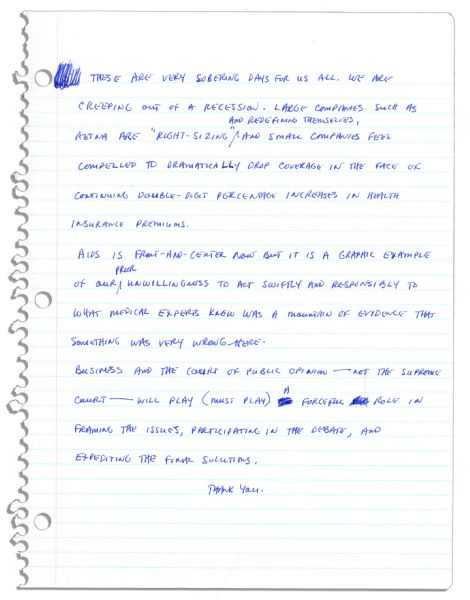 THESE ARE VERY SOBERING DAYS FOR US ALL. WE ARE
CREEPING OUT OF A RECESSION. LARGE COMPANIES SUCH AS
AND REDEFINING THEMSELVES,
AETNA ARE "RIGHT-SIZING" AND SMALL COMPANIES FEEL
COMPELLED TO DRAMATICALLY DROP COVERAGE IN THE FACE OF
CONTINUING DOUBLE-DIGIT PERCENTAGE INCREASES IN HEALTH
INSURANCE PREMIUMS.
AIDS IS FRONT-AND-CENTER NOW BUT IT IS A GRAPHIC EXAMPLE
PRIOR
OF OUR UNWILLINGNESS TO ACT SWIFTLY AND RESPONSIBLY TO
WHAT MEDICAL EXPERTS KNEW WAS A MOUNTAIN OF EVIDENCE THAT
SOMETHING WAS VERY WRONG HERE.
BUSINESS AND THE COURT OF PUBLIC OPINION — NOT THE SUPREME
A
COURT — WILL PLAY (MUST PLAY) FORCEFUL ROLE IN
FRAMING THE ISSUES, PARTICIPATING IN THE DEBATE, AND
EXPEDITING THE FINAL SOLUTIONS.
THANK YOU.